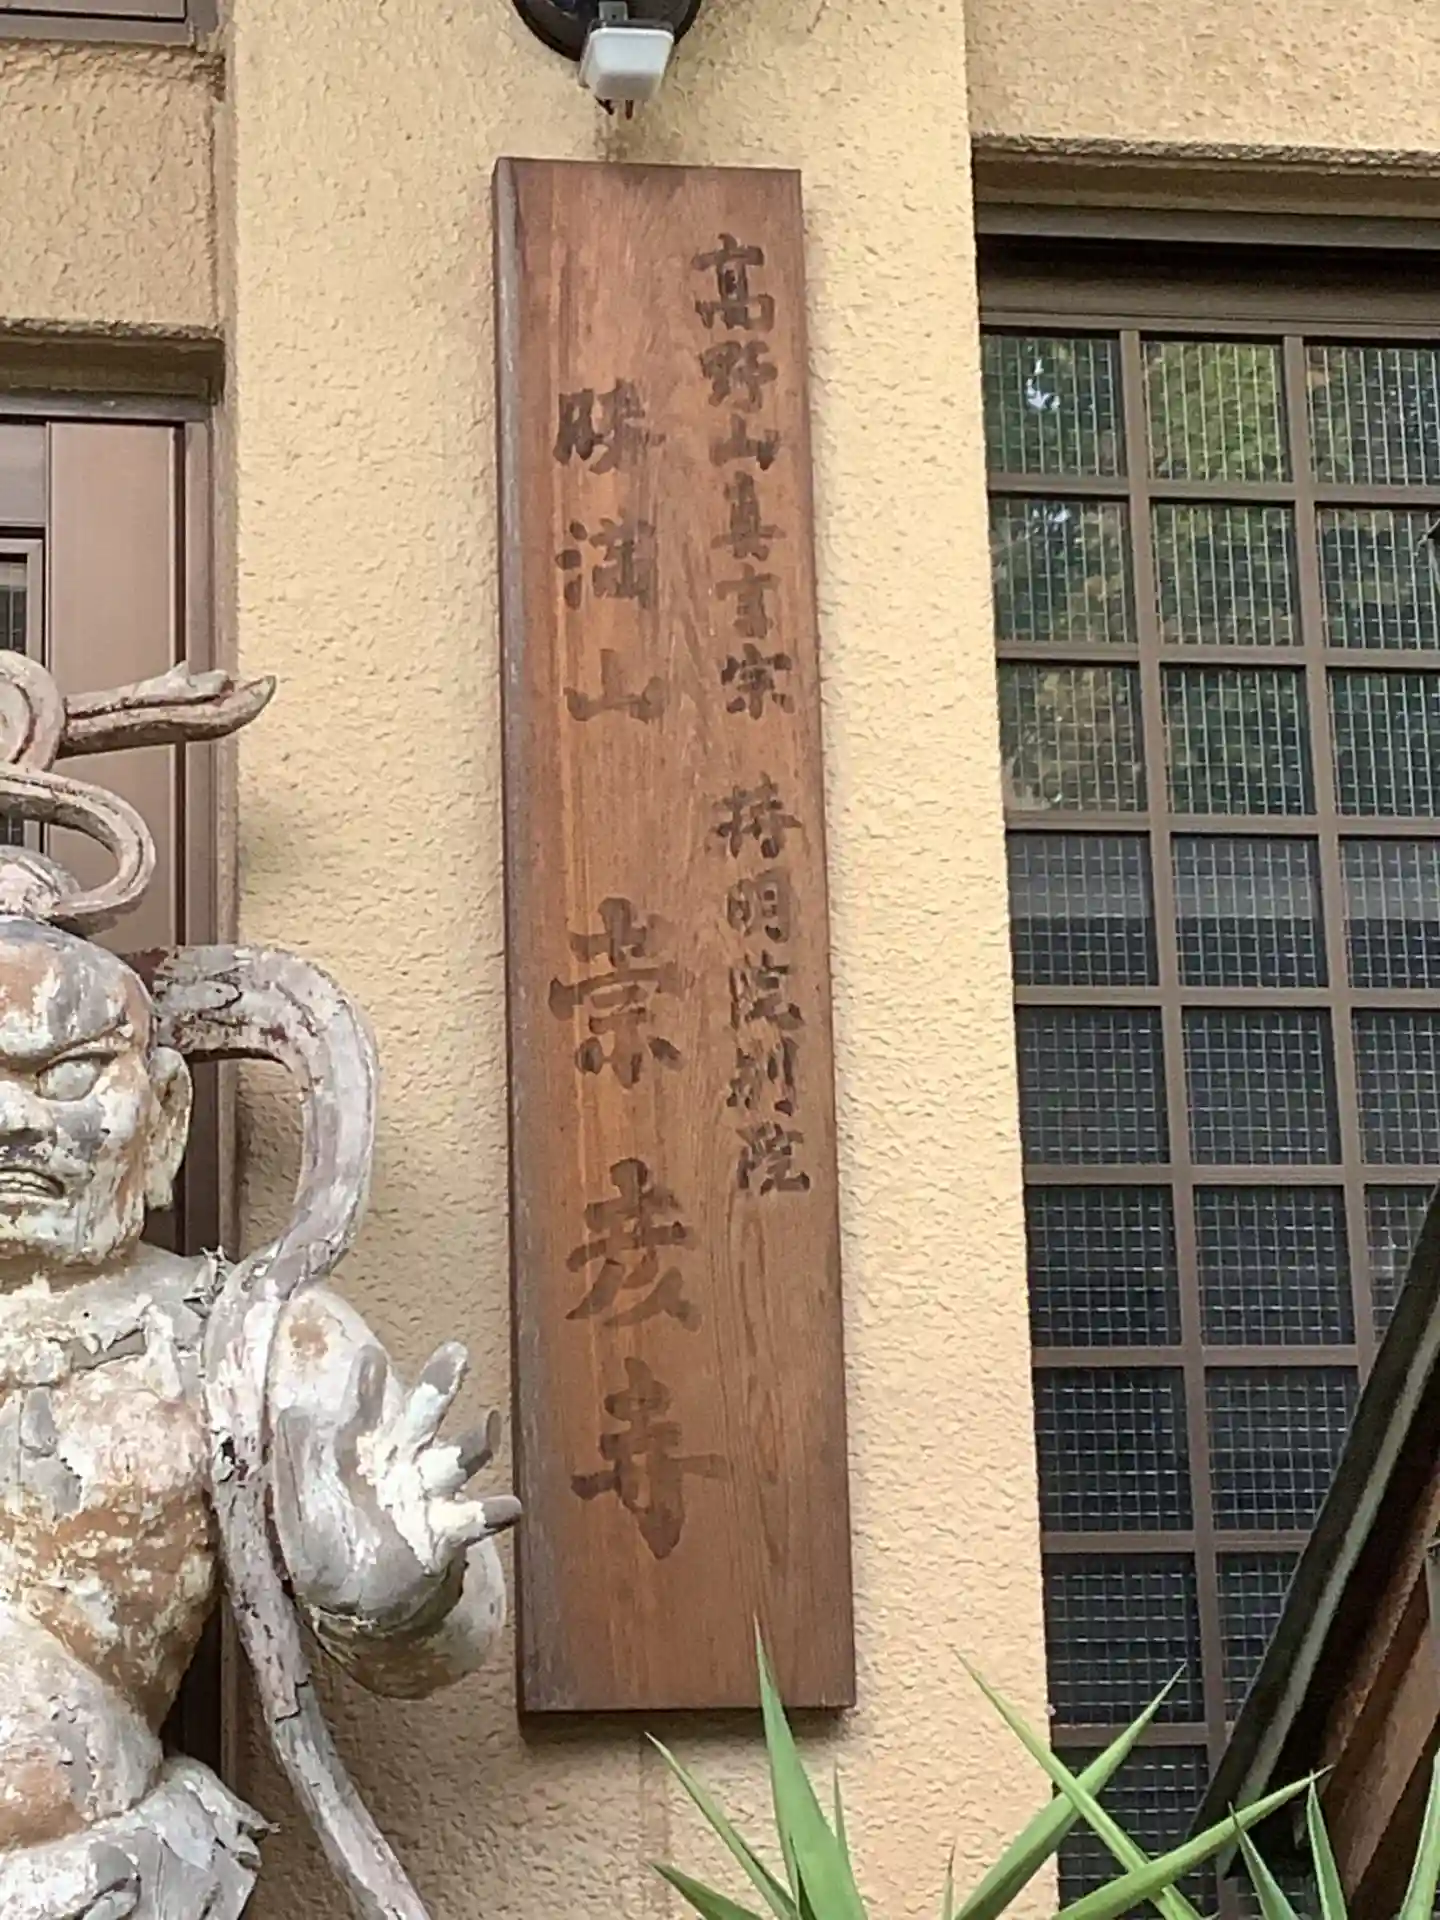 高野山真言宗 持明院別院
映満山 崇彦寺